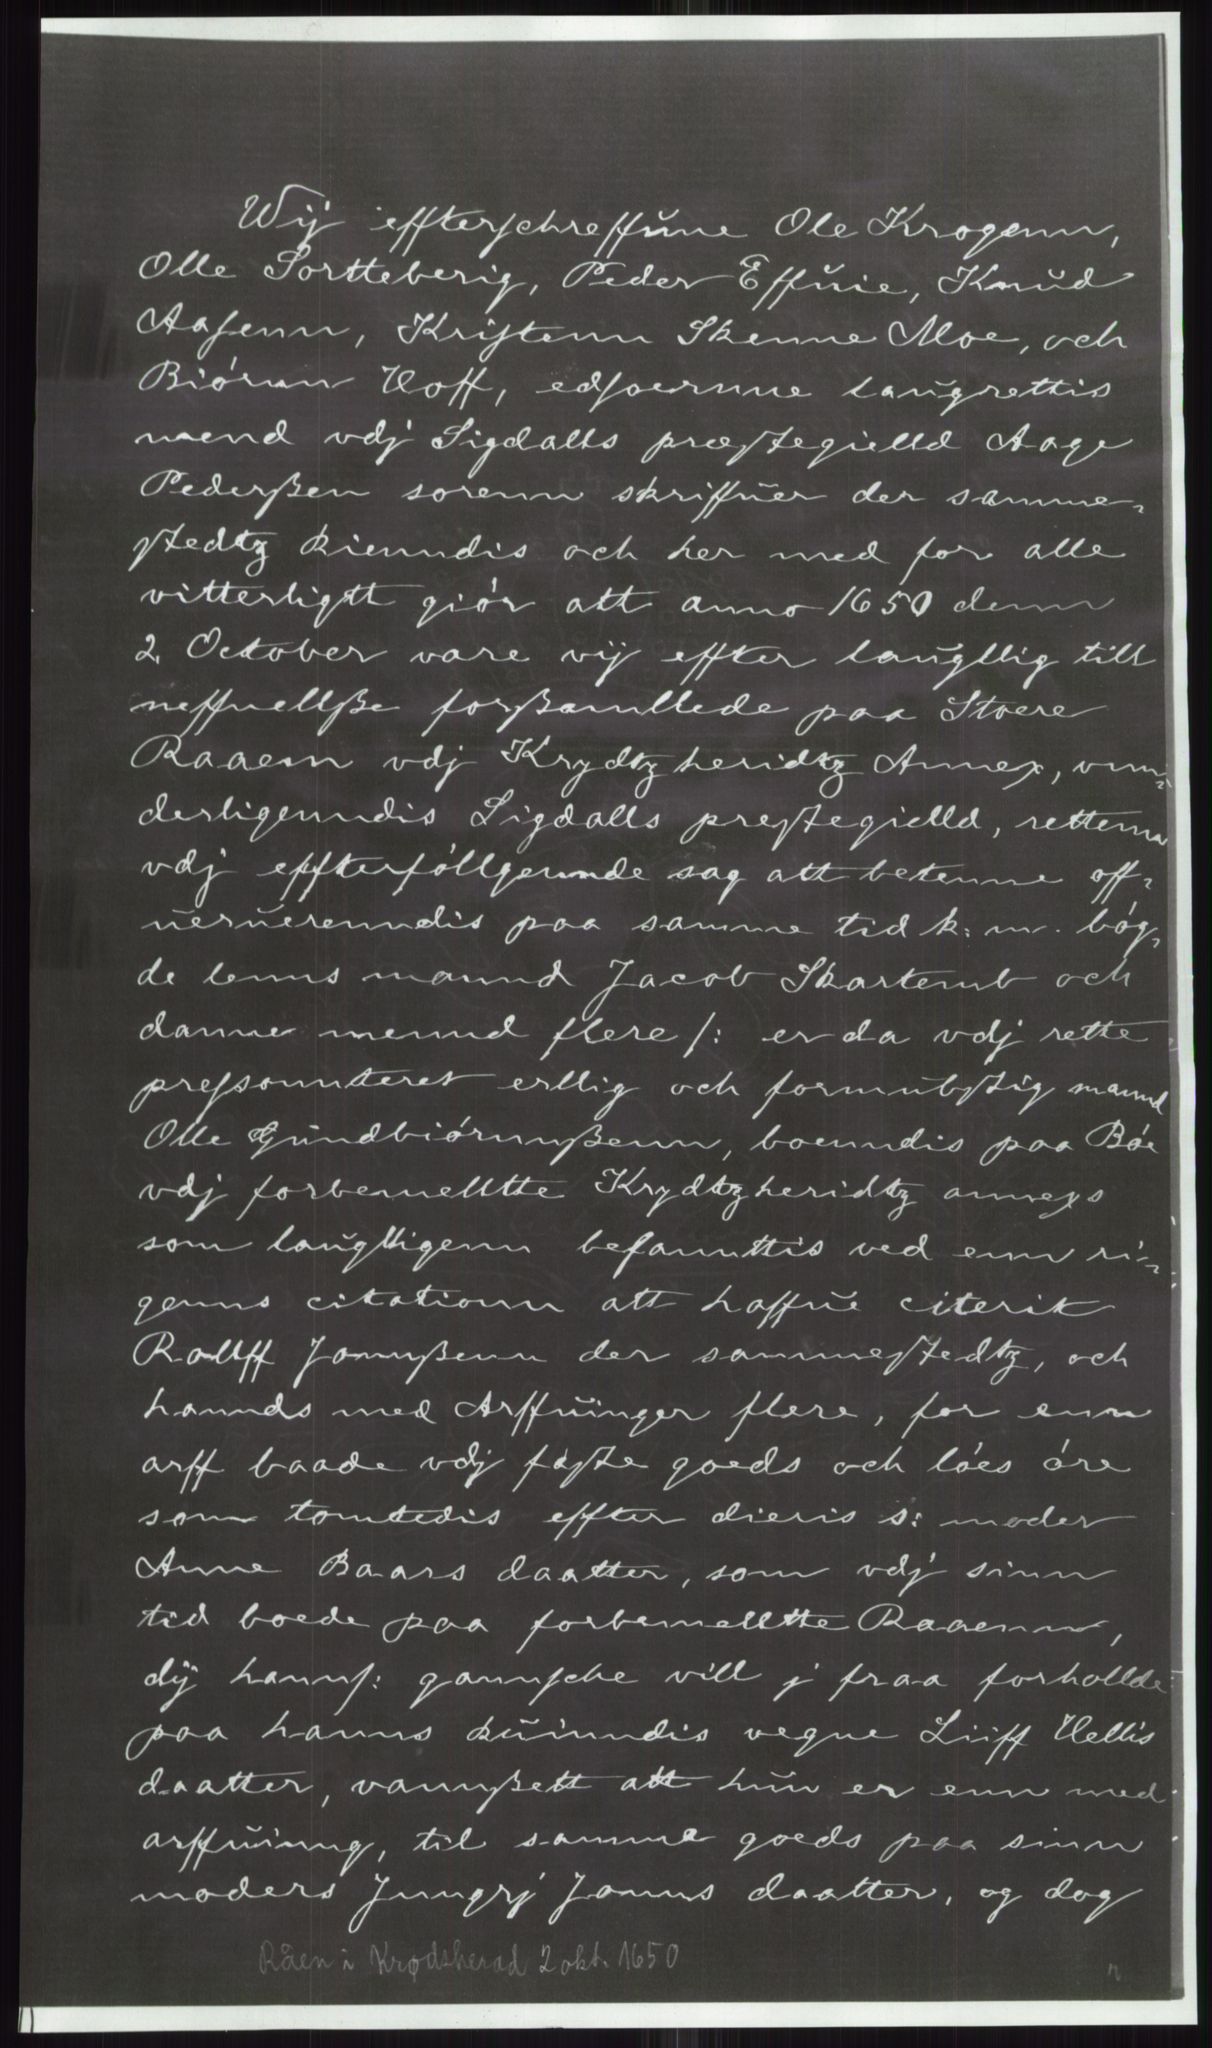 Wij effterschreffŭne Ole Krogenn,
Olle Sortteberig, Peder Effŭie, Knŭd
Aasenn, Kristenn Skenne Moe, och
Biórnn Hoff, edsoernne laŭgrettis
mend vdj Sigdalls præstegielld Aage
Pederßen sorenn skriffŭer der samme-
stedtz kienndis och her med for alle
vitterligtt giór att anno 1650 denn
2, October vare vij effter laŭgllig till
neffnellße forßamllede paa Stoere
Raaenn vdj Krydtzheridtz Annex, vnn-
derligenndis Sigdalls prestegielld, rettenn
vdj effterfóllgennde sag att betenne off-
ŭerŭerenndis paa samme tid k: m. bóg-
de lenns mannd Jacob Skartemb och
danne mennd flere /: er da vdj rette
pressonnteret erllig och fornŭbstig mannd
Olle Gŭndbiórnnßenn, boenndis paa Bóe
vdj forbemellte Krydtzheridtz annexs
som laŭglligenn befanttis ved enn ri-
genns citationn att haffŭe citerit
Rollff Jonnßenn der sammestedtz, och
hannds med Arffŭinger flere, for enn
arff baade vdj faste goeds och lóes óre
som tomtedis effter dieris s: moder
Anne Baars daatter, som vdj sinn
tid boede paa forbemellte Raaenn,
dij hanns: gannsche vill j fraa forhollde
paa hanns kŭinndis vegne Liiff Hellis
daatter, vannßett att hŭn er enn med
arffŭinng, til samme goeds paa sinn
moders Jnngrj Jonns daatter, og dog
Råen i Krødsherad 2 okt. 1650